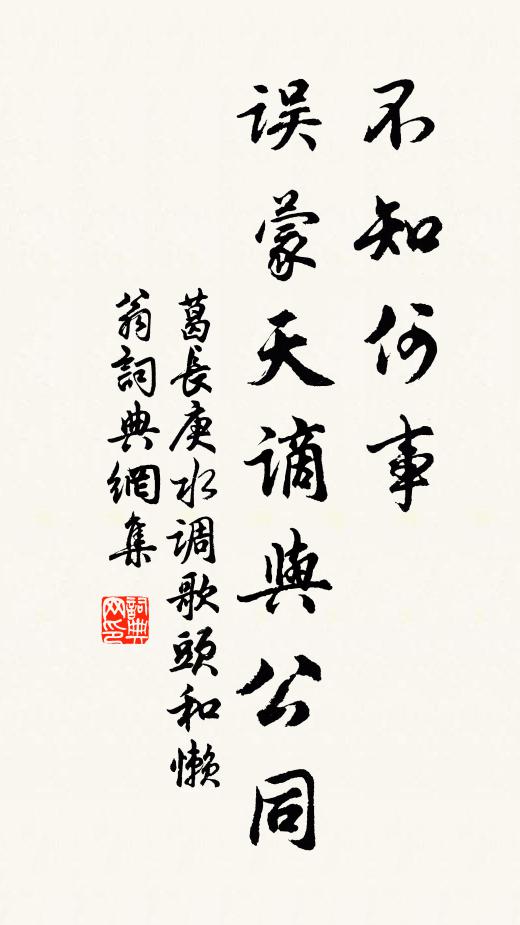 不知何事
误蒙天谪與公同
葛長庚水调歌頭和懒
翁詞典網集
詞典
网印